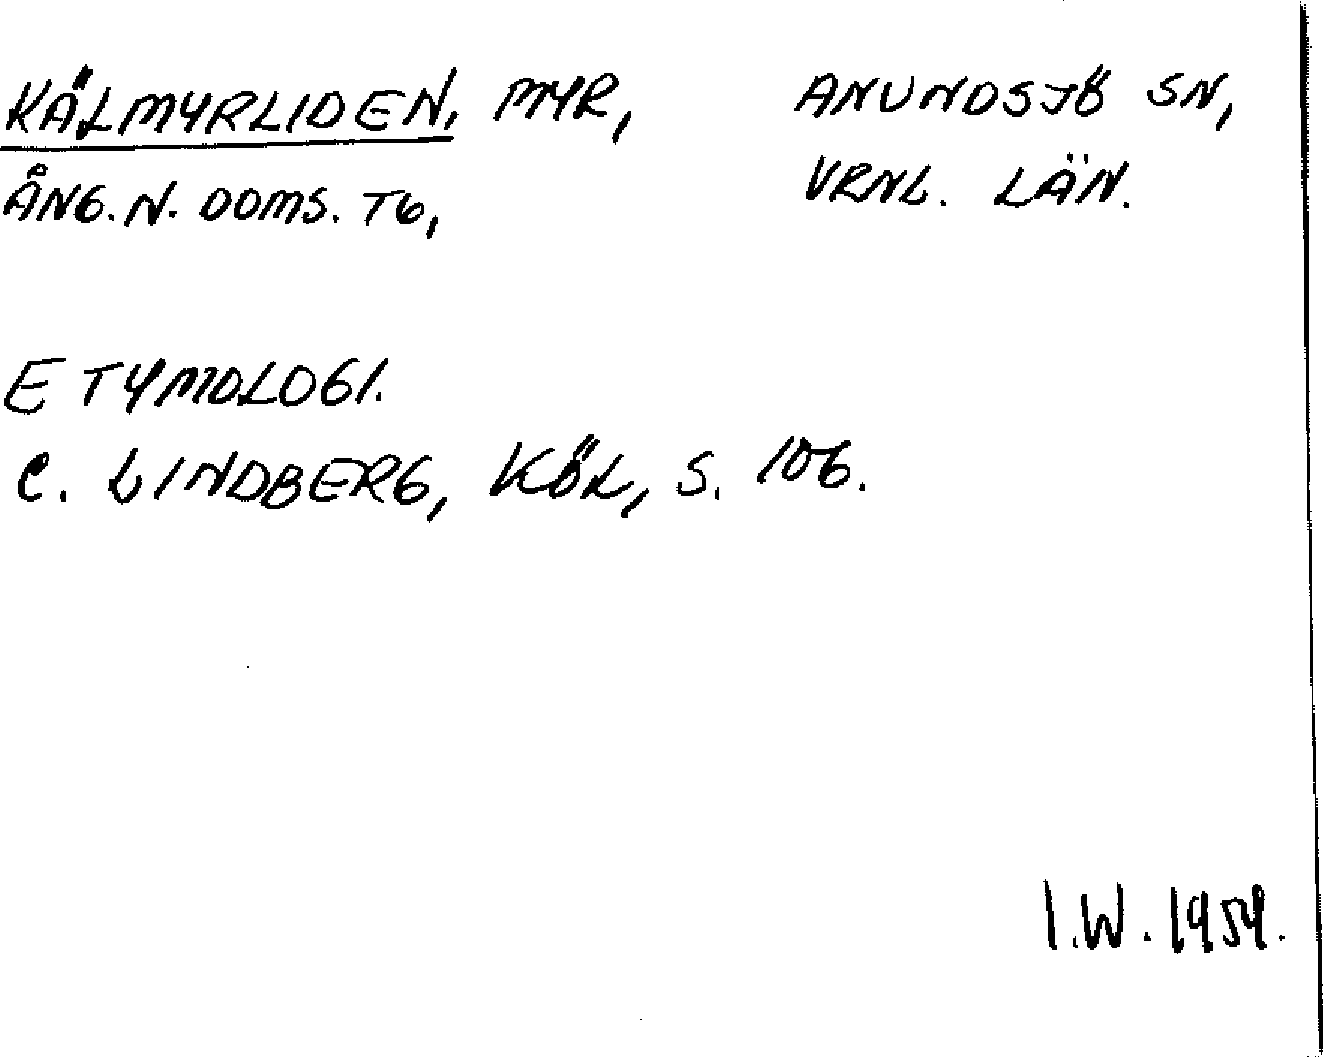 KÄLMYRLIDEN, MYR, ANUNDSJÖ SN,
ÅNG. N. DOMS. TG, VRNL. LÄN.
ETYMOLOGI.
C. LINDBERG, KÖL, S. 106.
I.W. 1959.